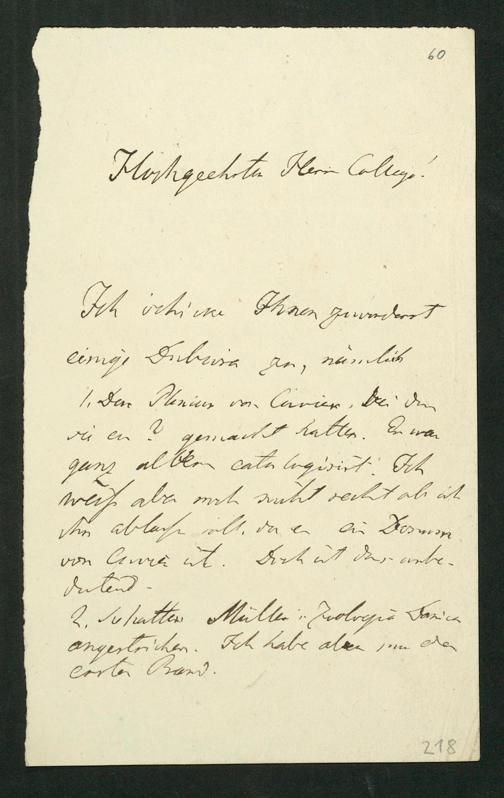 60
Hochgeehrter Herr College!
Ich schicke Ihnen zuvörderst
einige Dubiosa zu, nämlich
1. Den Plinius von Cuvier, bei dem
sie ein ? gemacht hatten. Er war
ganz allein catalogisirt. Ich
weiß aber noch nicht recht ob ich
ihn ablassen soll, da er ein Donum
von Cuvier ist. Doch ist das unbe-
deutend.
2. Sie hatten Müller's Zoologia Danica
angestrichen. Ich habe aber nur den
ersten Band.
218